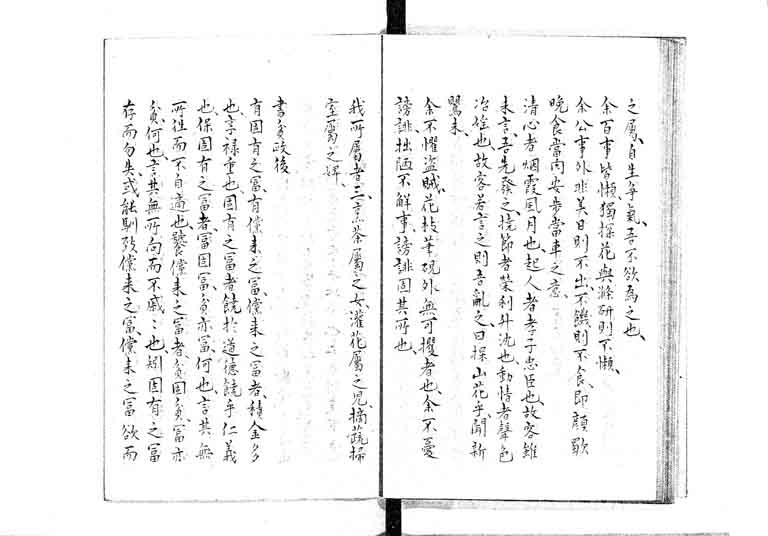 之屬、自生爭氣、吾不欲為之也、
余百事皆懶、獨採花與滌研則不懶、
余公事外非美日則不出、不饑則不食、即顏歜
晩食當肉安步當車之意、
清心者烟霞風月也、起人者孝子忠臣也、故客雖
未言吾先發之、撓節者榮利升沈也、動情者聲色
冶婬也、故客若言之則吾亂之曰採山花乎、聞新
鶯未、
余不懼盜賊、花枝筆硯外無可攫者也、余不憂
謗誹、拙陋不解事、謗誹固其所也、
我所屬者三、言茶屬之女、灌花屬之兒、摘蔬掃
室屬之婢、
書貧政後
有固有之富、有儻来之富、儻来之富者、積金多
也、享禄重也、固有之富者、饒於道德、饒乎仁義
也、保固有之富者、富固富、貧亦富、何也、言其無
所往而不自適也、饕儻来之富者、貧固貧、富亦
貧、何也、言其無所向而不戚〻也、矧固有之富
存而勿失、或能馴致儻来之富、儻来之富欲而